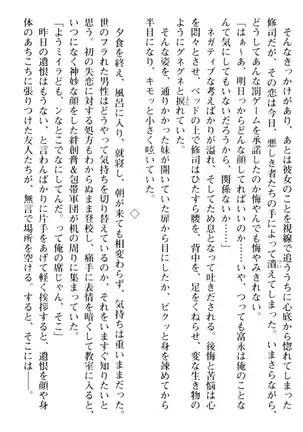 そんなきっかけがあり、あとは彼女のことを視線で追ううちに心底から惚れてしまった
修司だが、その恋は今日、悪しき者たちの手によって潰えてしまった。いまさらながら、
どうしてあんな罰ゲームを承諾したのか悔やんでも悔やみきれない。
「はぁぁぁ、明日っからどんな顔してればいいのか……いや、つっても富永は俺のことな
んて気にしてもいないだろうから、関係ないか……」
ネガティブな考えにばかりが溢れ、そしてため息となって吐きだされる。後悔と苦悩は心
を悶々とさせ、ベッドの上で修司はひたすら腰を、背中を、足をくねらせ、変な生き物の
ようにグネグネと捩れていた。
そんな姿を、通りかかった妹が開いていた扉から目にしたのか、ビクッと身を竦めてから
半目になり、キモッと小さく呟いていた。
◇
夕食を終え、風呂に入り、就寝し、朝が来ても相変わらず、気持ちは重いままだった。
世のフラれた男性はどうやって気持ちを切り替えているのか、それをいますぐ知りたいと
思う。初の失恋に対する処方もわからぬまま登校し、痛手に表情を暗くして教室に入ると、
いつになく神妙な顔をした絆創膏&包帯軍団が机の周りに集まっていた。
「ようミイラども、んなとこでなにしてんだ。って俺の席じゃん、そこ」
昨日の遺恨はもうない、と言わんばかりに片手をあげて軽く挨拶すると、遺恨を顔や身
体のあちこちに張りつけた友人たちが、無言で場所を空ける。すると、そこには――。